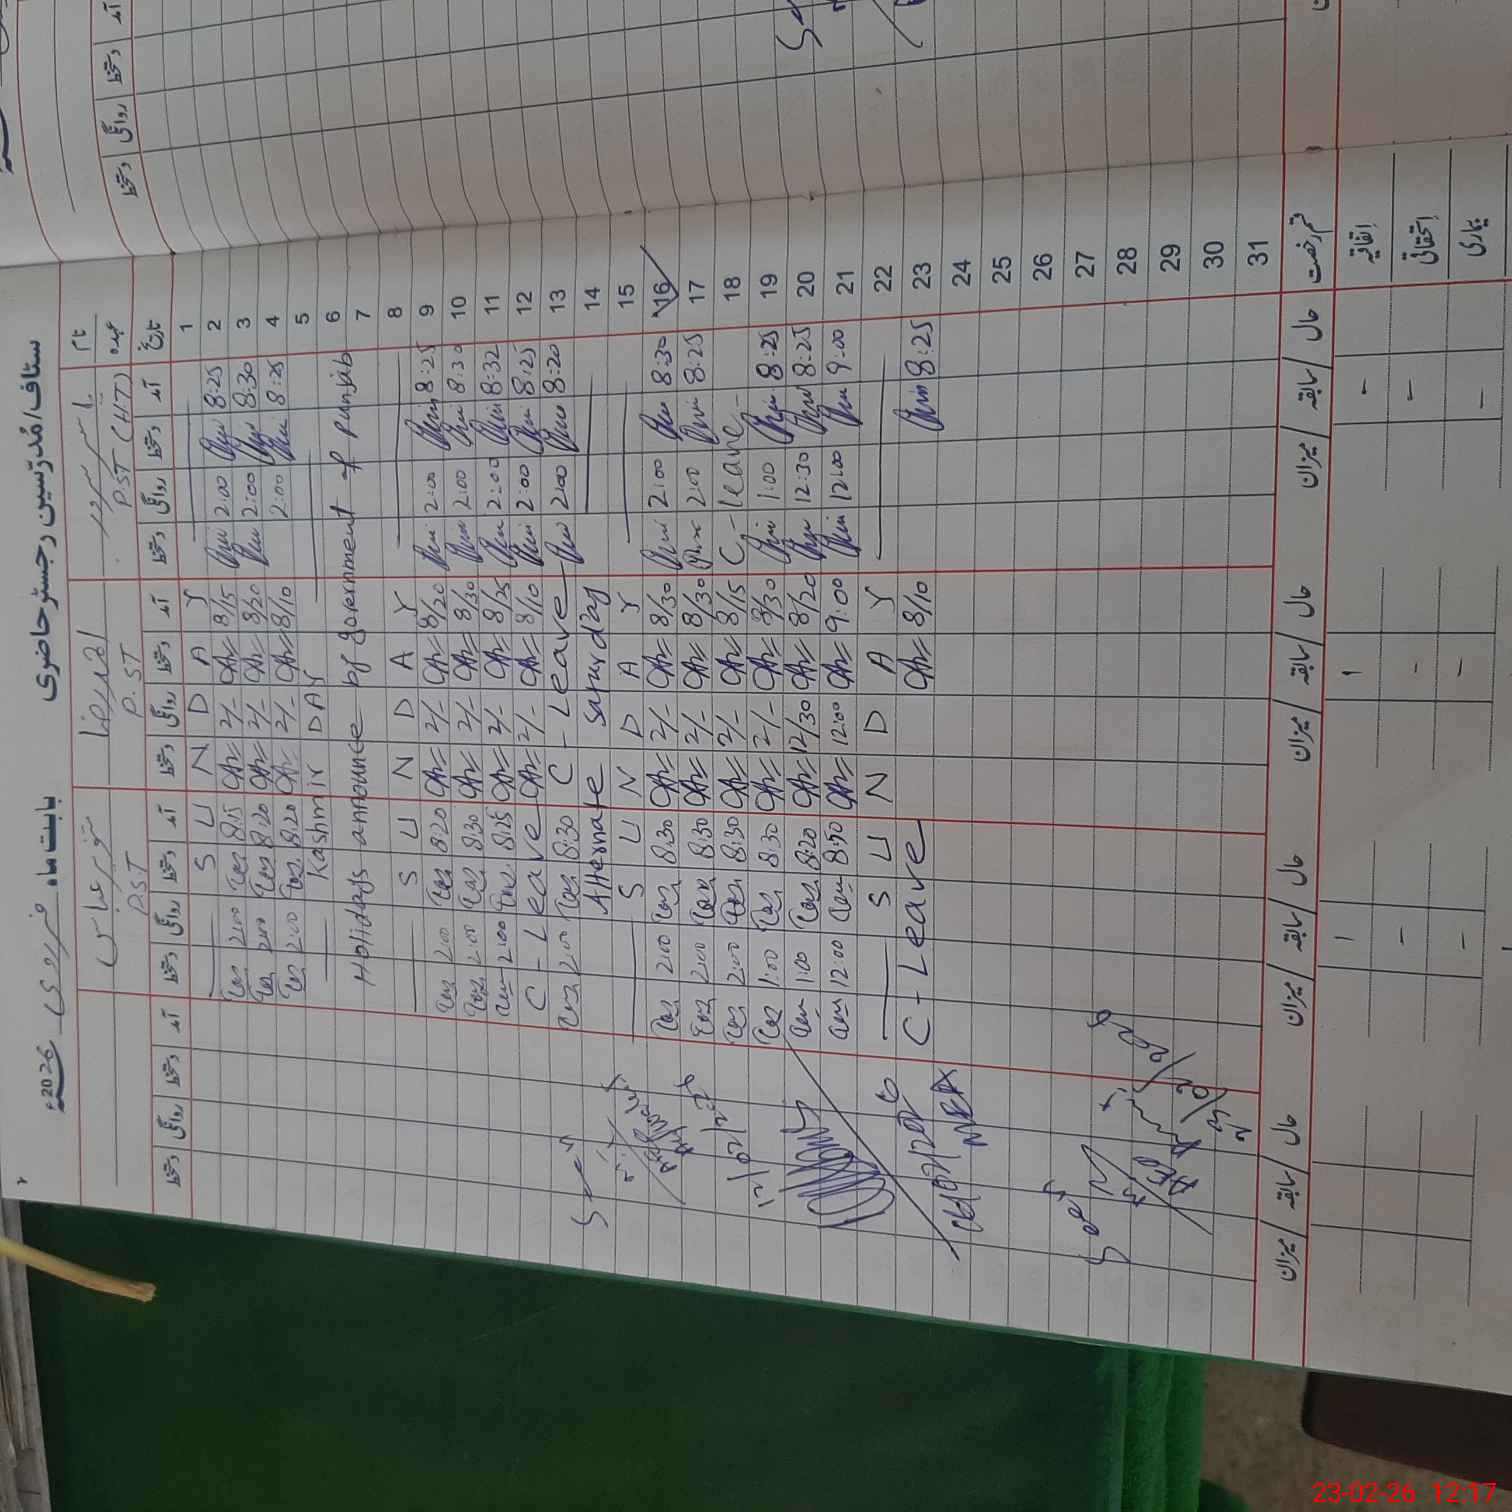 سٹاف/مُدرّسین رجسٹر حاضری بابت ماہ فروری 2026ء
نام
عہدہ
PST (HT)
P.ST
PST
تاریخ آمد دستخط روانگی دستخط آمد دستخط روانگی دستخط آمد دستخط روانگی دستخط آمد دستخط روانگی دستخط
1 S U N D A Y
2 8:25 2:00 8/15 2/- 8:15 2:00
3 8:30 2:00 8/20 2/- 8:20 2:00
4 8:25 2:00 8/10 2/- 8:20 2:00
5 Kashmir DAY
6 Holidays announce by government of punjab
7
8 S U N D A Y
9 8:25 2:00 8/20 2/- 8:20 2:00
10 8:30 2:00 8/30 2/- 8:30 2:00
11 8:32 2:00 8/25 2/- 8:25 2:00
12 8:25 2:00 8/10 2/- C - Leave
13 8:20 2:00 C - Leave 8:30 2:00
14 Alternate Saturday
15 S U N D A Y
16 8:30 2:00 8/30 2/- 8:30 2:00
17 8:25 2:00 8/30 2/- 8:30 2:00
18 C - leave 8/15 2/- 8:30 2:00
19 8:25 1:00 8/30 2/- 8:30 1:00
20 8:25 12:30 8/20 12/30 8:20 1:00
21 9:00 12:00 9:00 12:00 8:50 12:00
22 S U N D A Y
23 8:25 8/10 C - Leave
24
25
26
27
28
29
30
31
قسم رخصت حال / سابقہ / میزان حال / سابقہ / میزان حال / سابقہ / میزان حال / سابقہ / میزان
اتفاقیہ - 1 1
استحقاقی - - -
بیماری - - -
Seen
23-02-26 12:17